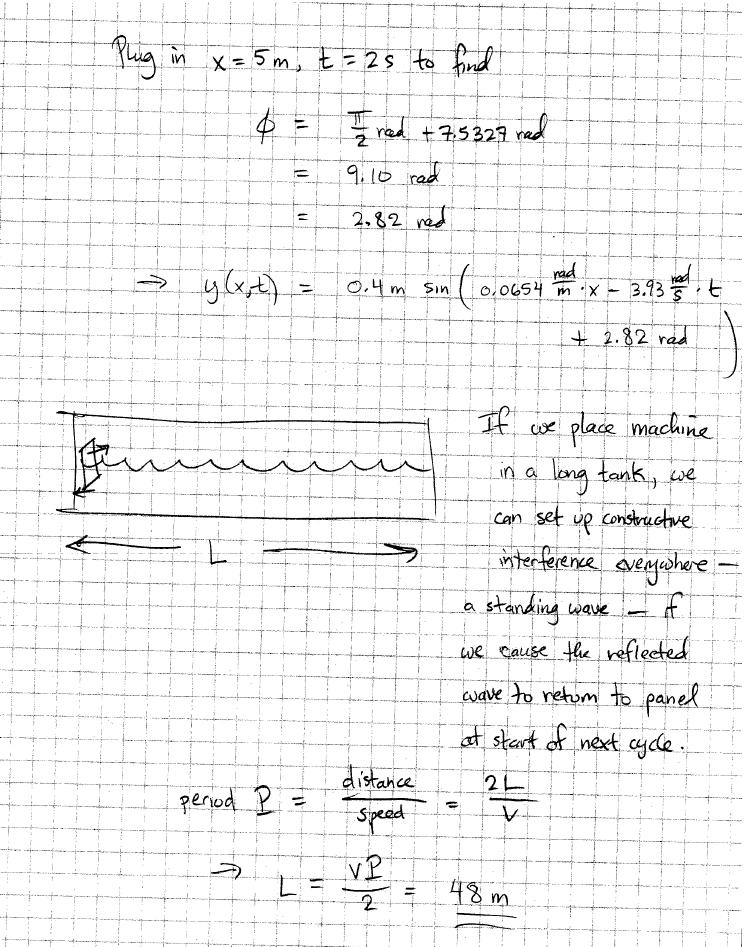 Plug in x = 5 m, t = 2 s to find
φ = π/2 rad + 7.5327 rad
= 9.10 rad
= 2.82 rad
⇒ y(x,t) = 0.4 m sin ( 0.0654 rad/m · x − 3.93 rad/s · t
+ 2.82 rad )
If we place machine
in a long tank, we
can set up constructive
interference everywhere —
a standing wave — if
we cause the reflected
wave to return to panel
at start of next cycle.
L
period P = distance/speed = 2L/v
→ L = vP/2 = 48 m